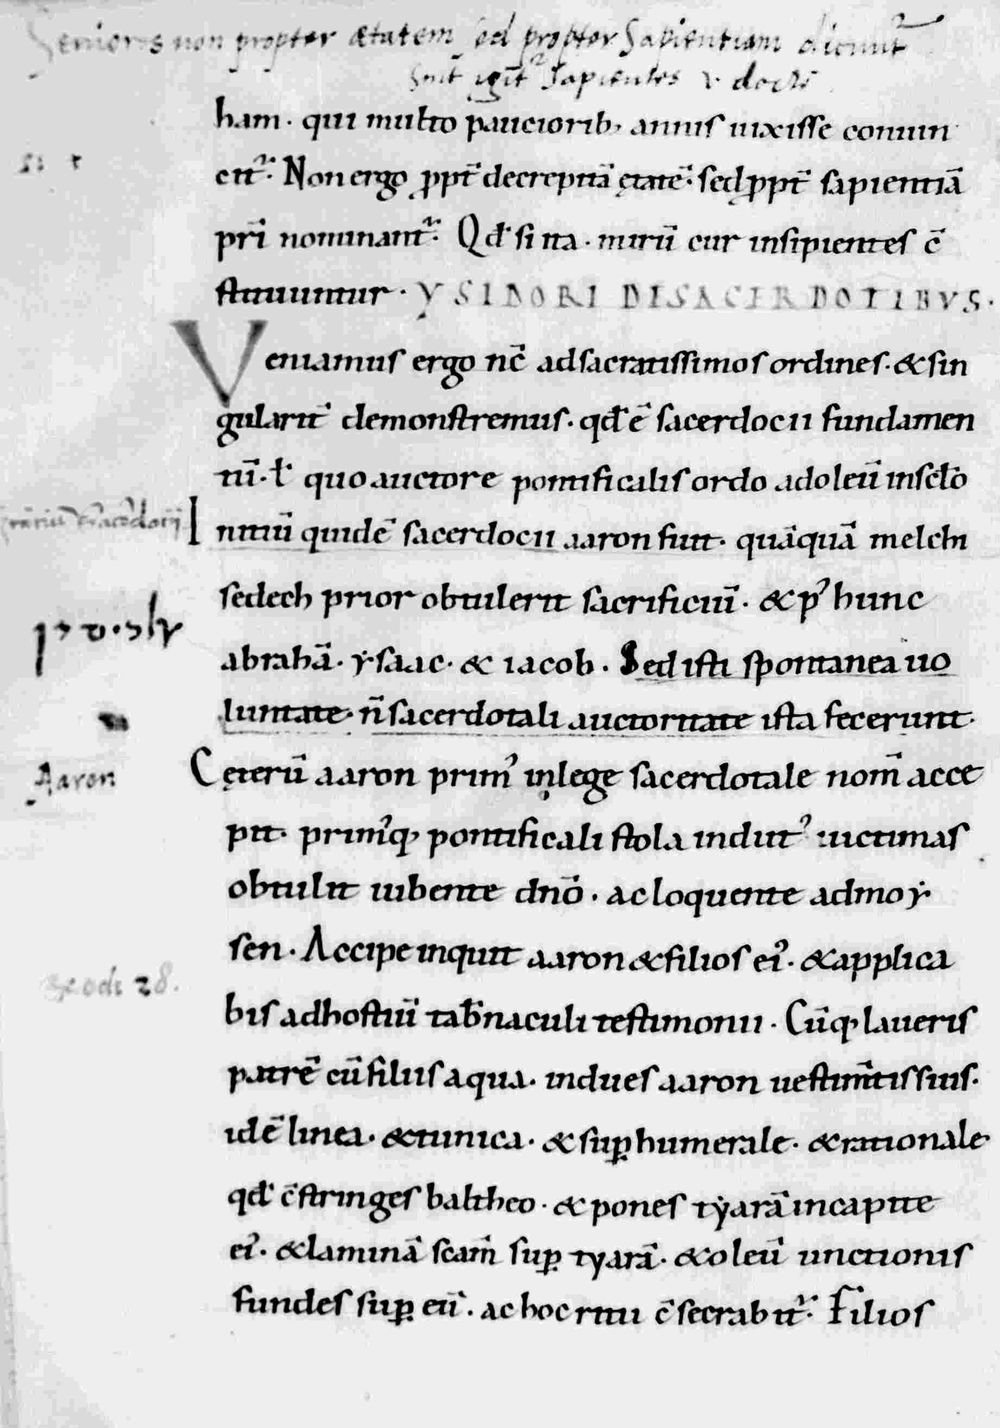 Seniores non propter ætatem sed propter Sapientiam dicunt᷑
Sint igit᷑ Sapientes & docti
ham · qui multo paucioribꝫ annis uixisse conuin
cit᷑· Non ergo ꝓpt̄ decrepitā ętatē · sed ꝓpt̄ sapientiā
pr̄i nominant᷑· Qđ si ita · mirū cur insipientes c̄
stituuntur · YSIDORI DI SACERDOTIBVS ·
Veniamus ergo nc̄ ad sacratissimos ordines · & sin
gularit̄ demonstremus · qđ ē sacerdocii fundamen
tū · ƚ quo auctore pontificalis ordo adoleuī inscƚo
Initiū quidē sacerdocii aaron fuit · quāquā melchi
sedech prior obtulerit sacrificiū · & pꝰ hunc
abrahā · ysaac · & iacob · Sed isti spontanea uo
luntate · n̄ sacerdotali auctoritate ista fecerunt ·
Aaron
Cęterū aaron primꝰ in lege sacerdotale nom̄ acce
pit · primꝰqꝫ pontificali stola indutꝰ uictimas
obtulit iubente dnō · ac loquente ad moy
sen · Accipe inquit aaron & filios eiꝰ · & applica
Exodi 28.
bis ad hostiū tab̄naculi testimonii · Cūqꝫ laueris
patrē cū filiis aqua · indues aaron uestim̄tis suis ·
idē linea · & tunica · & suꝑhumerale · & rationale
qđ c̄stringes baltheo · & pones tyarā in capite
eiꝰ · & laminā scam̄ suꝑ tyarā · & oleū unctionis
fundes suꝑ eū · ac hoc ritu c̄secrabit᷑· Filios